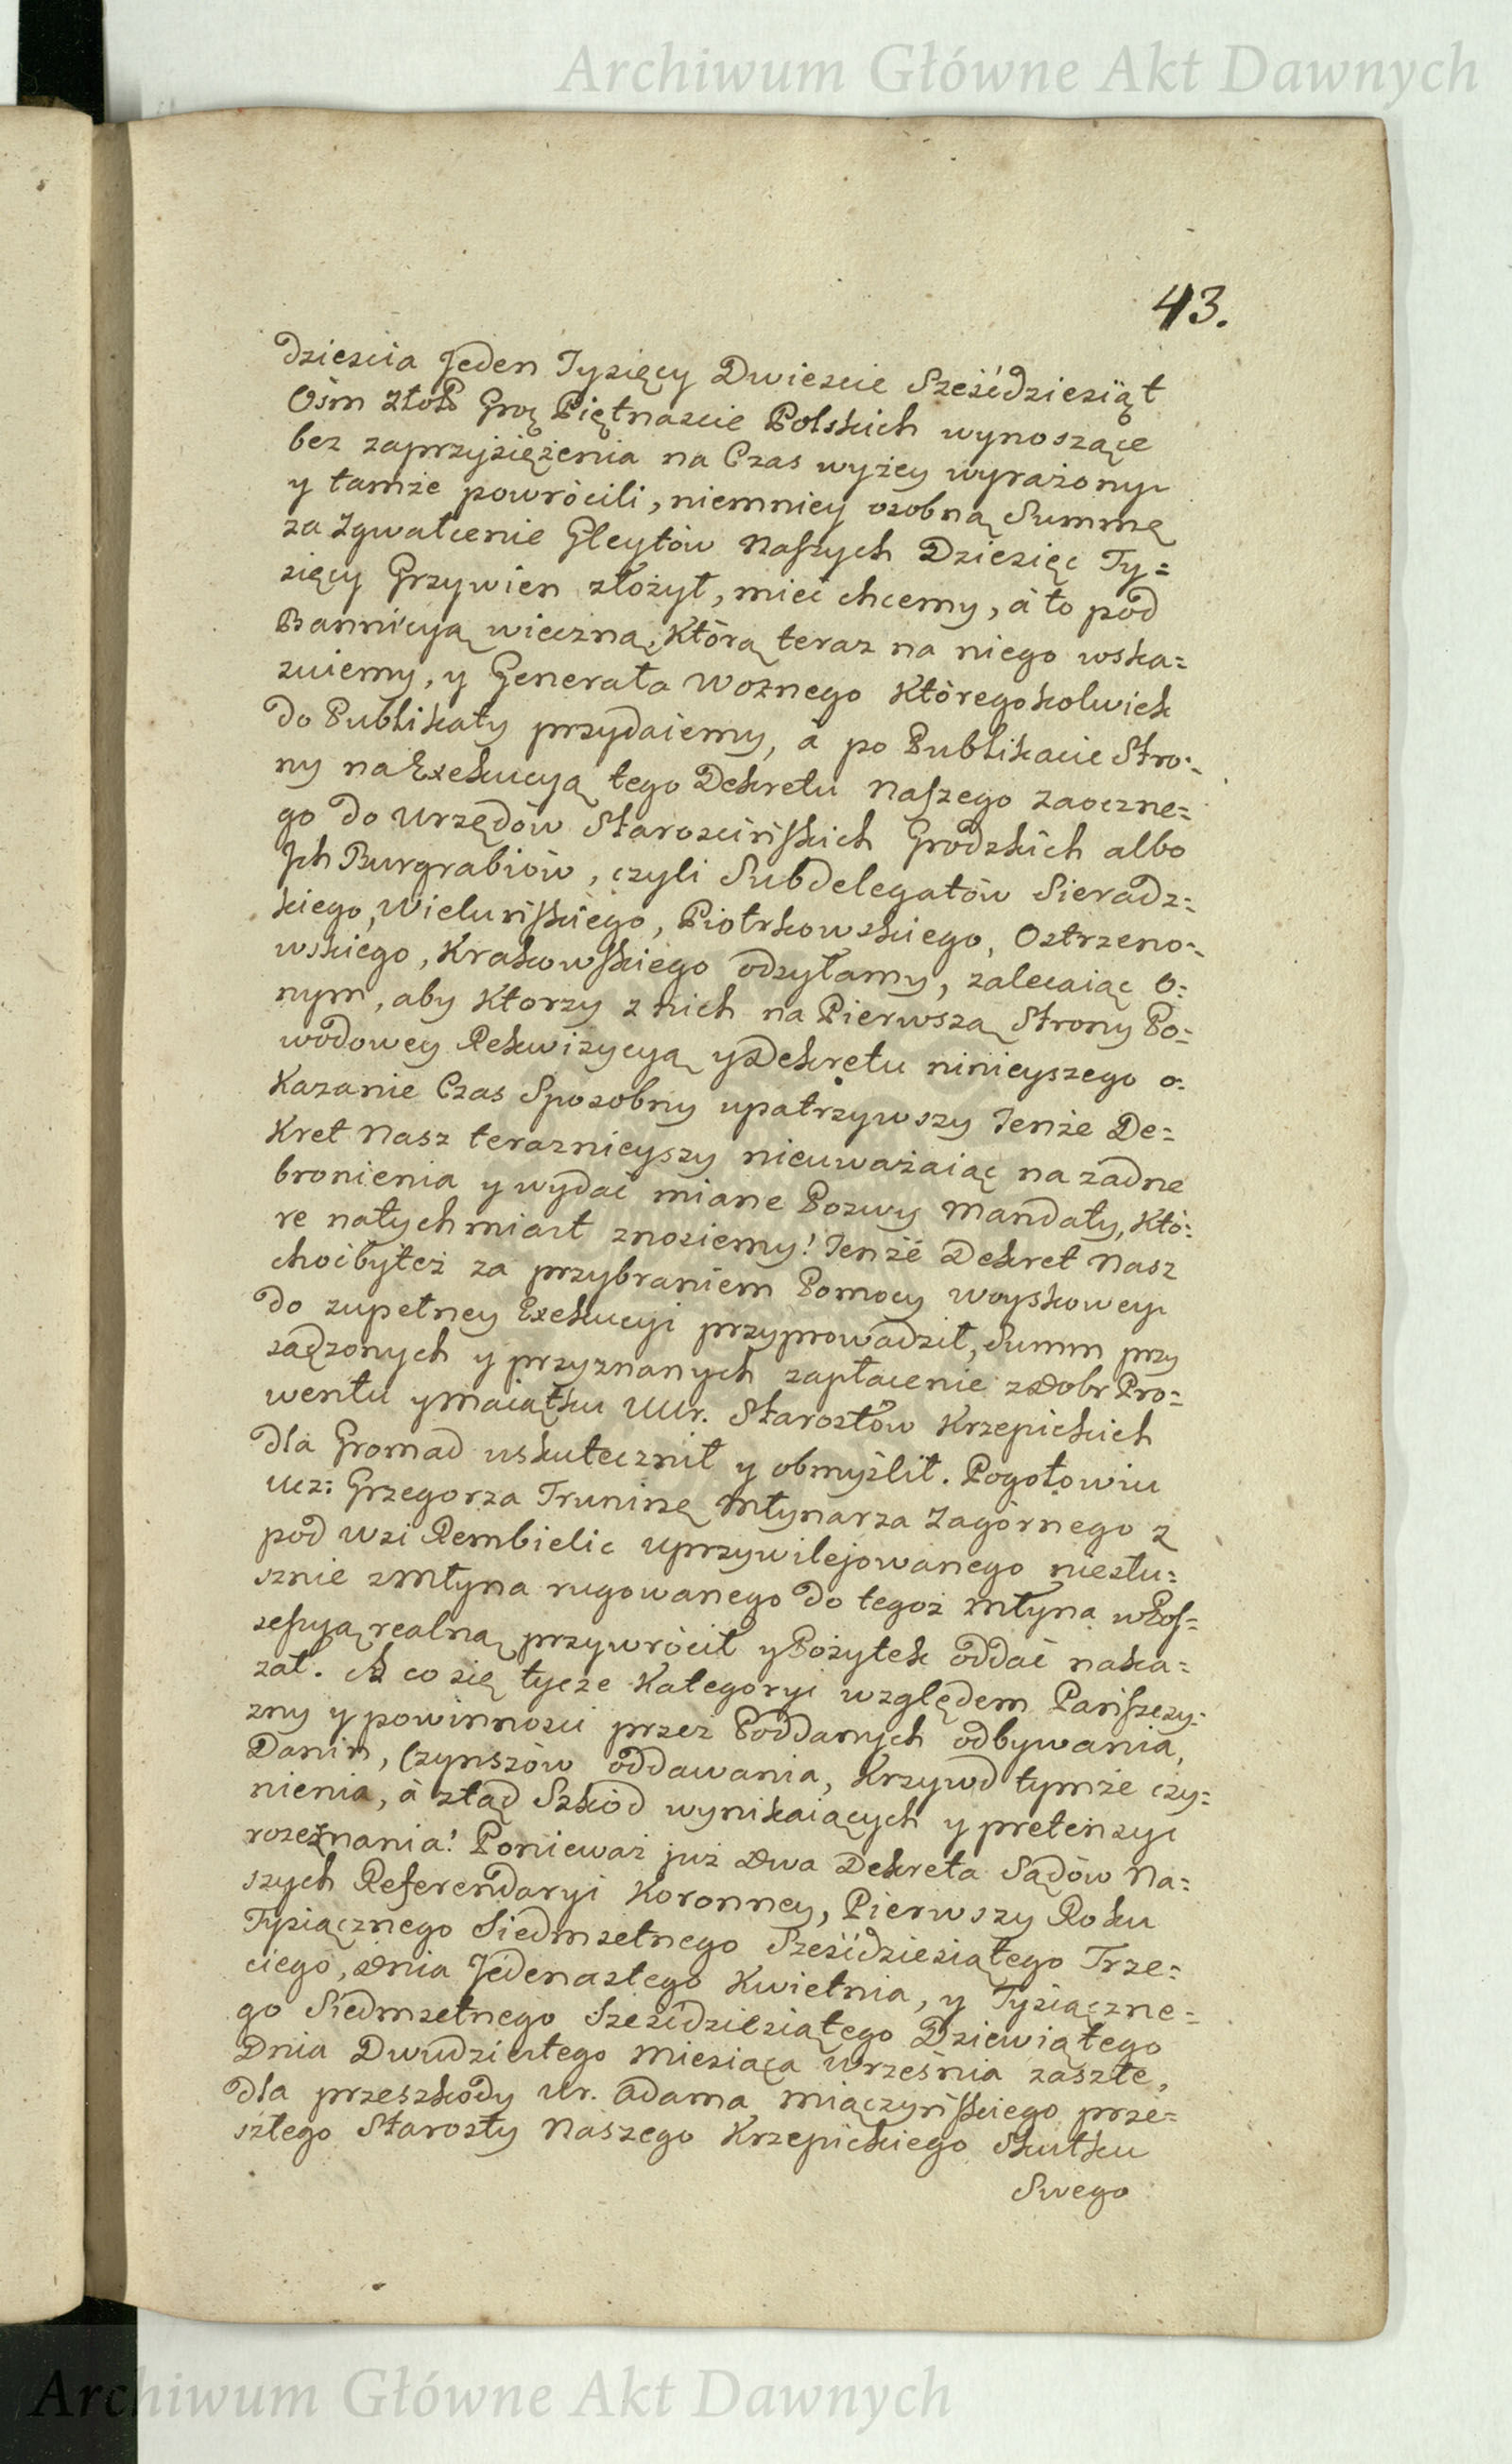 Archiwum Główne Akt Dawnych
43.
dziescia Jeden Tysięcy Dwiescie Sześćdziesiąt
Ośm Złotł Groę Piętnascie Polskich wynoszące
bez zaprzysiężenia na Czas wyżey wyrażony
y tamże powrócili, niemniey osobną Summę
za Zgwałcenie Gleytów Naszych Dziesięć Ty=
sięcy Grzywien złożył, mieć chcemy, á to pod
Bannicyą wieczną, Którą teraz na niego wska=
zuiemy, y Generała Woznego Któregokolwiek
do Publikaty przydaiemy, á po Publikacie Stro=
ny na Exekucyą tego Dekretu Naszego zaoczne=
go do Urzędów Starościńskich Grodzkich albo
Jch Burgrabiów, czyli Subdelegatów Sieradz=
kiego, Wieluńskiego, Piotrkowskiego, Ostrzeno=
wskiego, Krakowskiego odsyłamy, zalecaiąc O=
nym, aby Ktorzy z nich na Pierwszą Strony Po=
wodowey Rekwizycyą y Dekretu ninieyszego o=
Kazanie Czas Sposobny upatrzywszy Tenże De=
Kret Nasz teraznieyszy nieuważaiąc na żadne
bronienia y wydać miane Pozwy Mandaty, Któ=
re natychmiast znosiemy! Tenże Dekret Nasz
choćbyteż za przybraniem Pomocy woyskowey
do zupełney Exekucyi przyprowadził, Summ przy
sądzonych y przyznanych zapłacenie z Dobr Pro=
wentu y Maiątku UUr. Starostów Krzepickich
dla Gromad uskutecznił y obmyślił. Pogotowiu
Ucz: Grzegorza Truninę Młynarza Zagórnego z
pod Wsi Rembielic uprzywilejowanego niesłu=
sznie z Młyna rugowanego do tegoż Młyna w Pos=
sesyą realną przywrócił y Pożytek oddać naka=
zał. A co się tycze Kategoryi względem Pańszczy=
zny y powinności przez Poddanych odbywania,
Danin, Czynszów oddawania, Krzywd tymże czy=
nienia, á ztąd Szkód wynikaiących y pretensyi
rozeznania! Ponieważ już Dwa Dekreta Sądów Na=
szych Referendaryi Koronney, Pierwszy Roku
Tysiącznego Siedmsetnego Sześćdziesiątego Trze=
ciego, Dnia Jedenastego Kwietnia, y Tysiączne=
go Siedmsetnego Sześćdziesiątego Dziewiątego
Dnia Dwudziestego Miesiąca Września zaszłe,
dla przeszkody Ur. Adama Miączyńskiego prze=
szłego Starosty Naszego Krzepickiego Skutku
Swego
Archiwum Główne Akt Dawnych